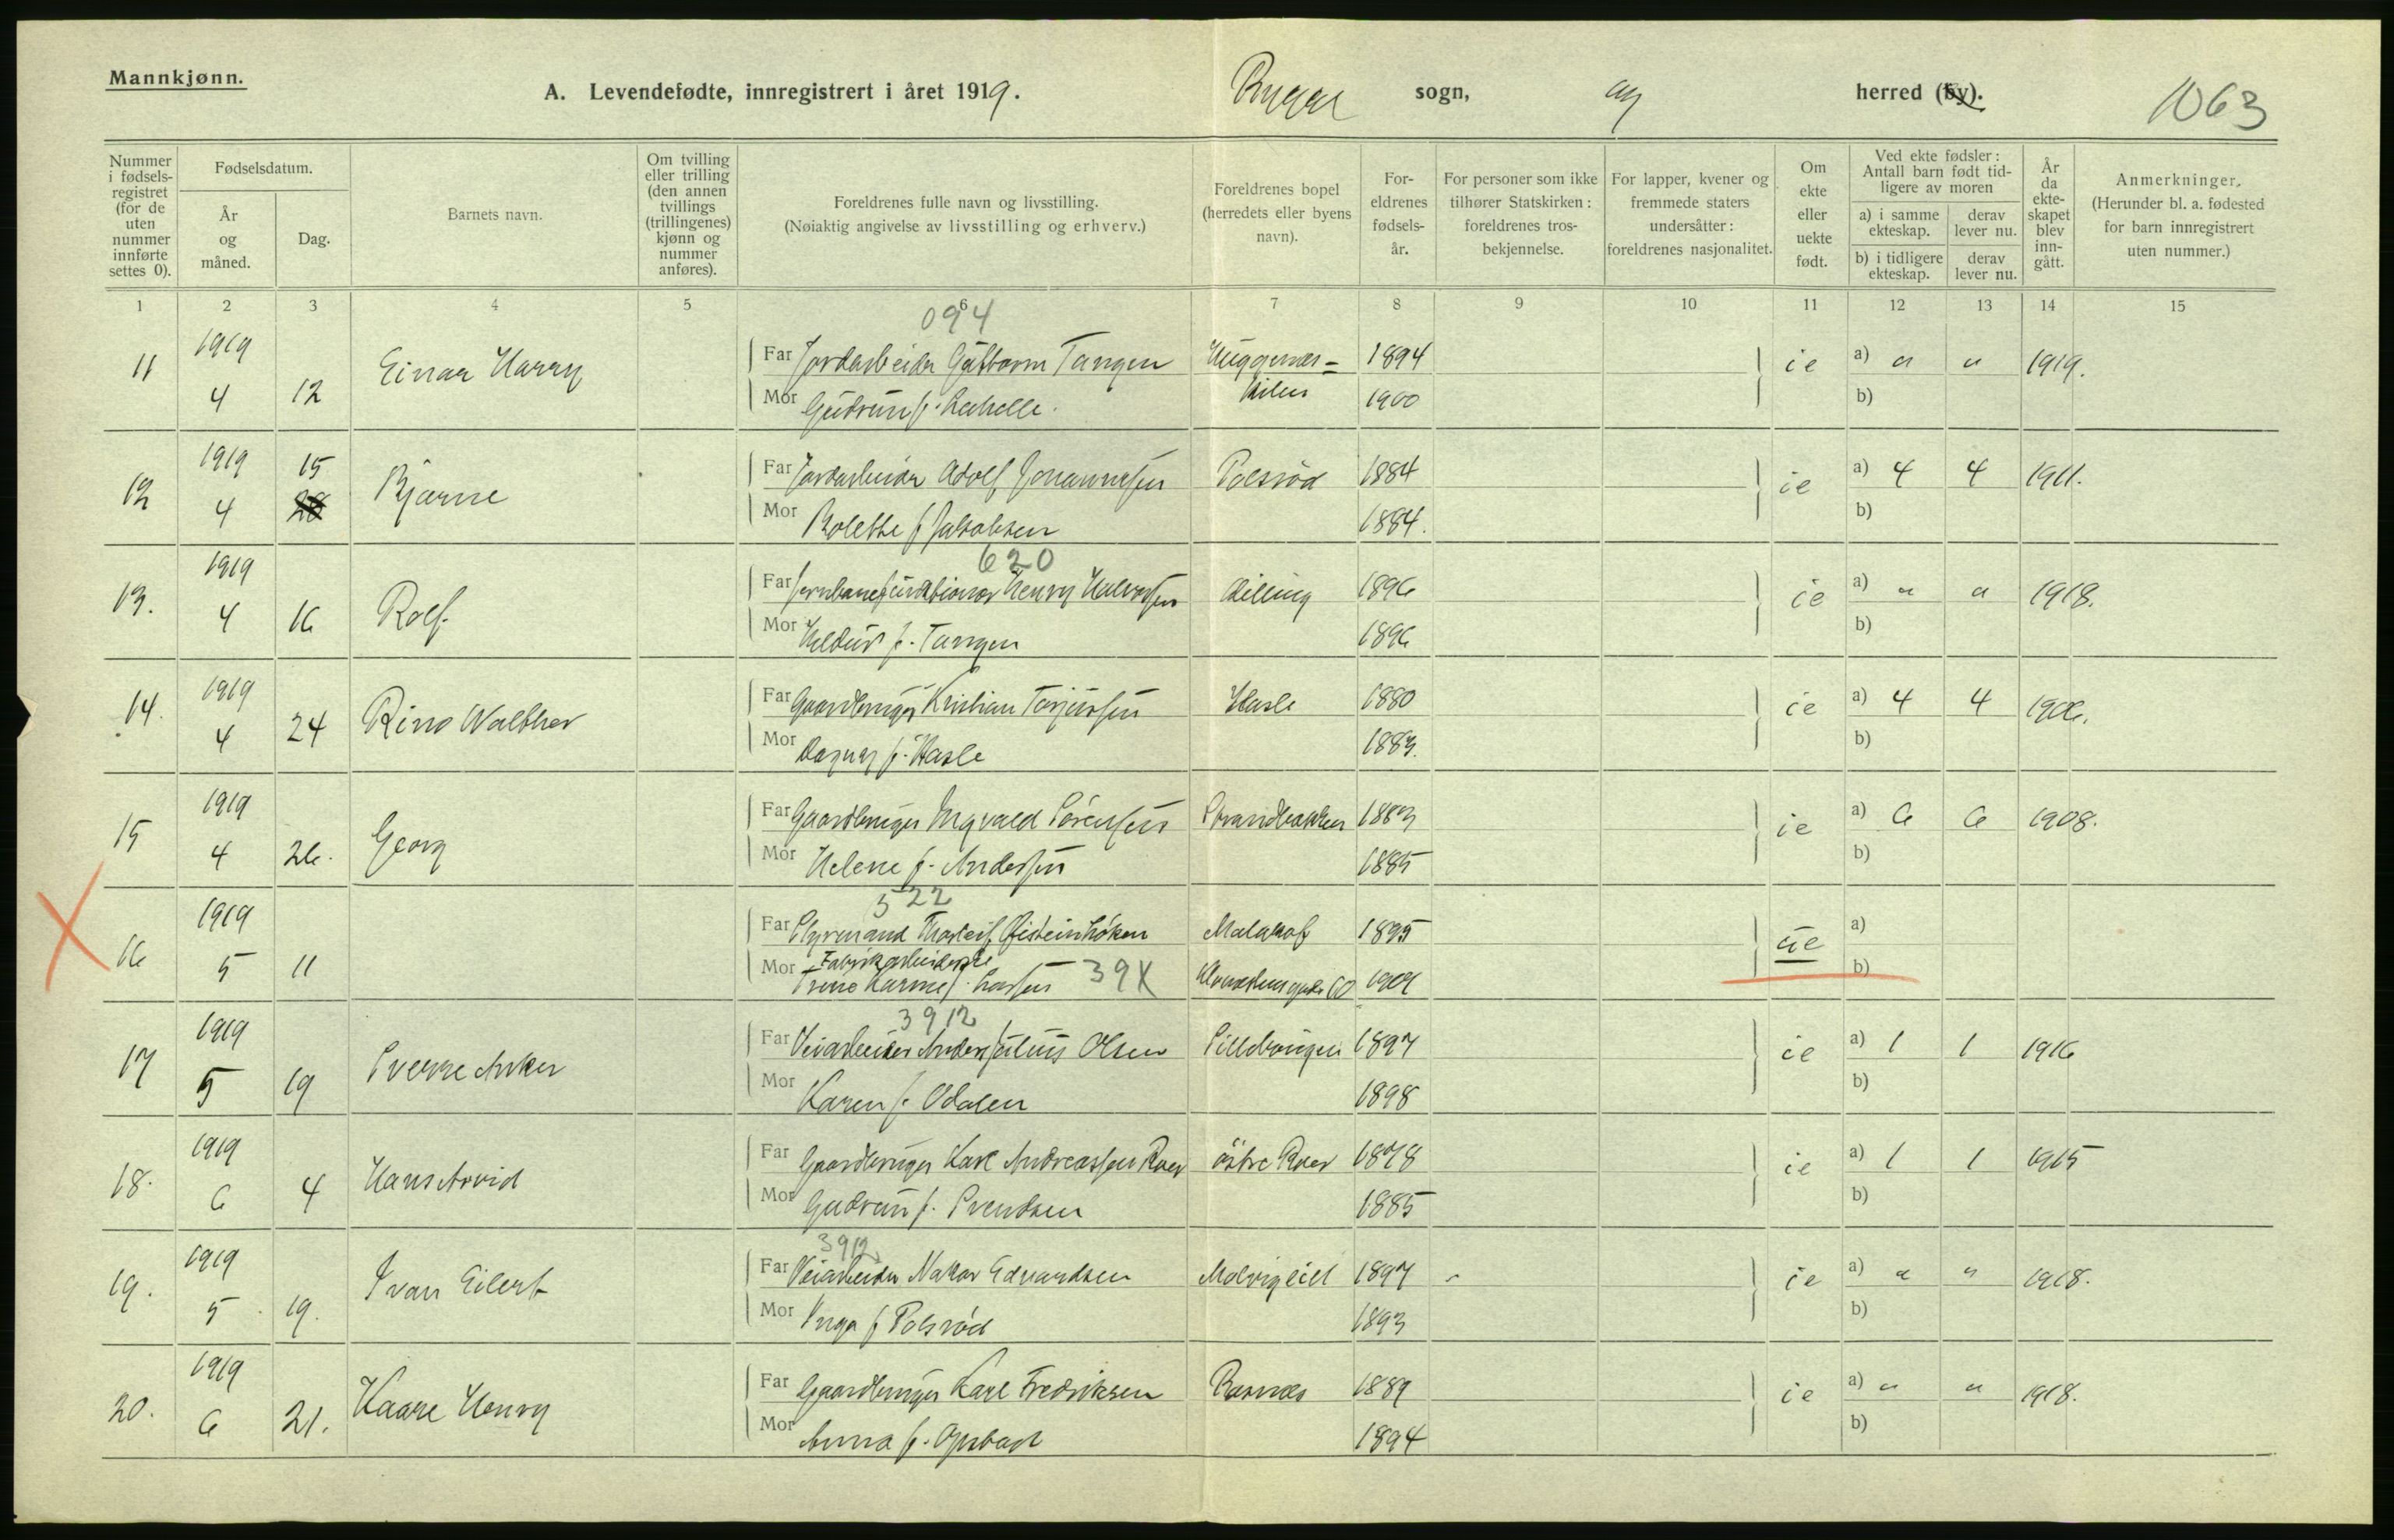 Mannkjønn.
A. Levendefødte, innregistrert i året 1919.
Rygge sogn, herred (by).
1063
Nummer i fødsels-registret (for de uten nummer innførte settes 0).
Fødselsdatum.
År og måned.
Dag.
Barnets navn.
Om tvilling eller trilling (den annen tvillings (trillingenes) kjønn og nummer anføres).
Foreldrenes fulle navn og livsstilling.
(Nøiaktig angivelse av livsstilling og erhverv.)
Foreldrenes bopel (herredets eller byens navn).
For-eldrenes fødsels-år.
For personer som ikke tilhører Statskirken: foreldrenes tros-bekjennelse.
For lapper, kvener og fremmede staters undersåtter: foreldrenes nasjonalitet.
Om ekte eller uekte født.
Ved ekte fødsler: Antall barn født tid-ligere av moren
a) i samme ekteskap.
derav lever nu.
b) i tidligere ekteskap.
derav lever nu.
År da ekte-skapet blev inn-gått.
Anmerkninger.
(Herunder bl. a. fødested for barn innregistrert uten nummer.)
1 2 3 4 5 6 7 8 9 10 11 12 13 14 15
094
11 1919 4 12 Einar Harry
Far Jordarbeider Guttorm Tangen 1894 ie a) " " 1919.
Mor Gudrun f. 1900 b)
12 1919 4 15 28 Bjarne
Far Jordarbeider Adolf Johannessen Polsrød 1884 ie a) 4 4 1911.
Mor Bolette f Jakobsen 1884. b)
620
13. 1919 4 16 Rolf
Far Henry Halvorsen Dilling 1896 ie a) " " 1918.
Mor Hildur f. Tangen 1896 b)
14. 1919 4 24 Rino Walther
Far Gaardbruger Kristian Terjessen Hasle 1880 ie a) 4 4 1906.
Mor Dagny f. Hasle 1883. b)
15 1919 4 26. Georg
Far Gaardbruger Ingvald Sørensen Strandbakken 1883 ie a) 6 6 1908.
Mor Helene f. Andersen 1885 b)
522
16 1919 5 11
Far Styrmand Thorleif Øistein Løken Malakof 1895 ue a)
Mor Fabrikarbeiderske
Larsen 39X 60 b)
3912
17 1919 5 19 Sverre Anker
Far Veiarbeider Anders Julius Olsen Sillebøngen 1897 ie a) 1 1 1916
Mor Karen f. Odalen 1898 b)
18. 1919 6 4 Hans Arvid
Far Gaardbruger Karl Andreassen Roer østre Roer 1878 ie a) 1 1 1915
Mor Gudrun f. Svendsen 1885 b)
3912
19. 1919 5 19. Ivan Eilert
Far Veiarbeider Edvardsen 1897 ie a) " " 1918.
Mor Inga f Polsrød 1893 b)
20. 1919 6 21. Kaare Henry
Far Gaardbruger Karl Fredriksen 1889 ie a) " " 1918.
Mor Anna f. 1894 b)